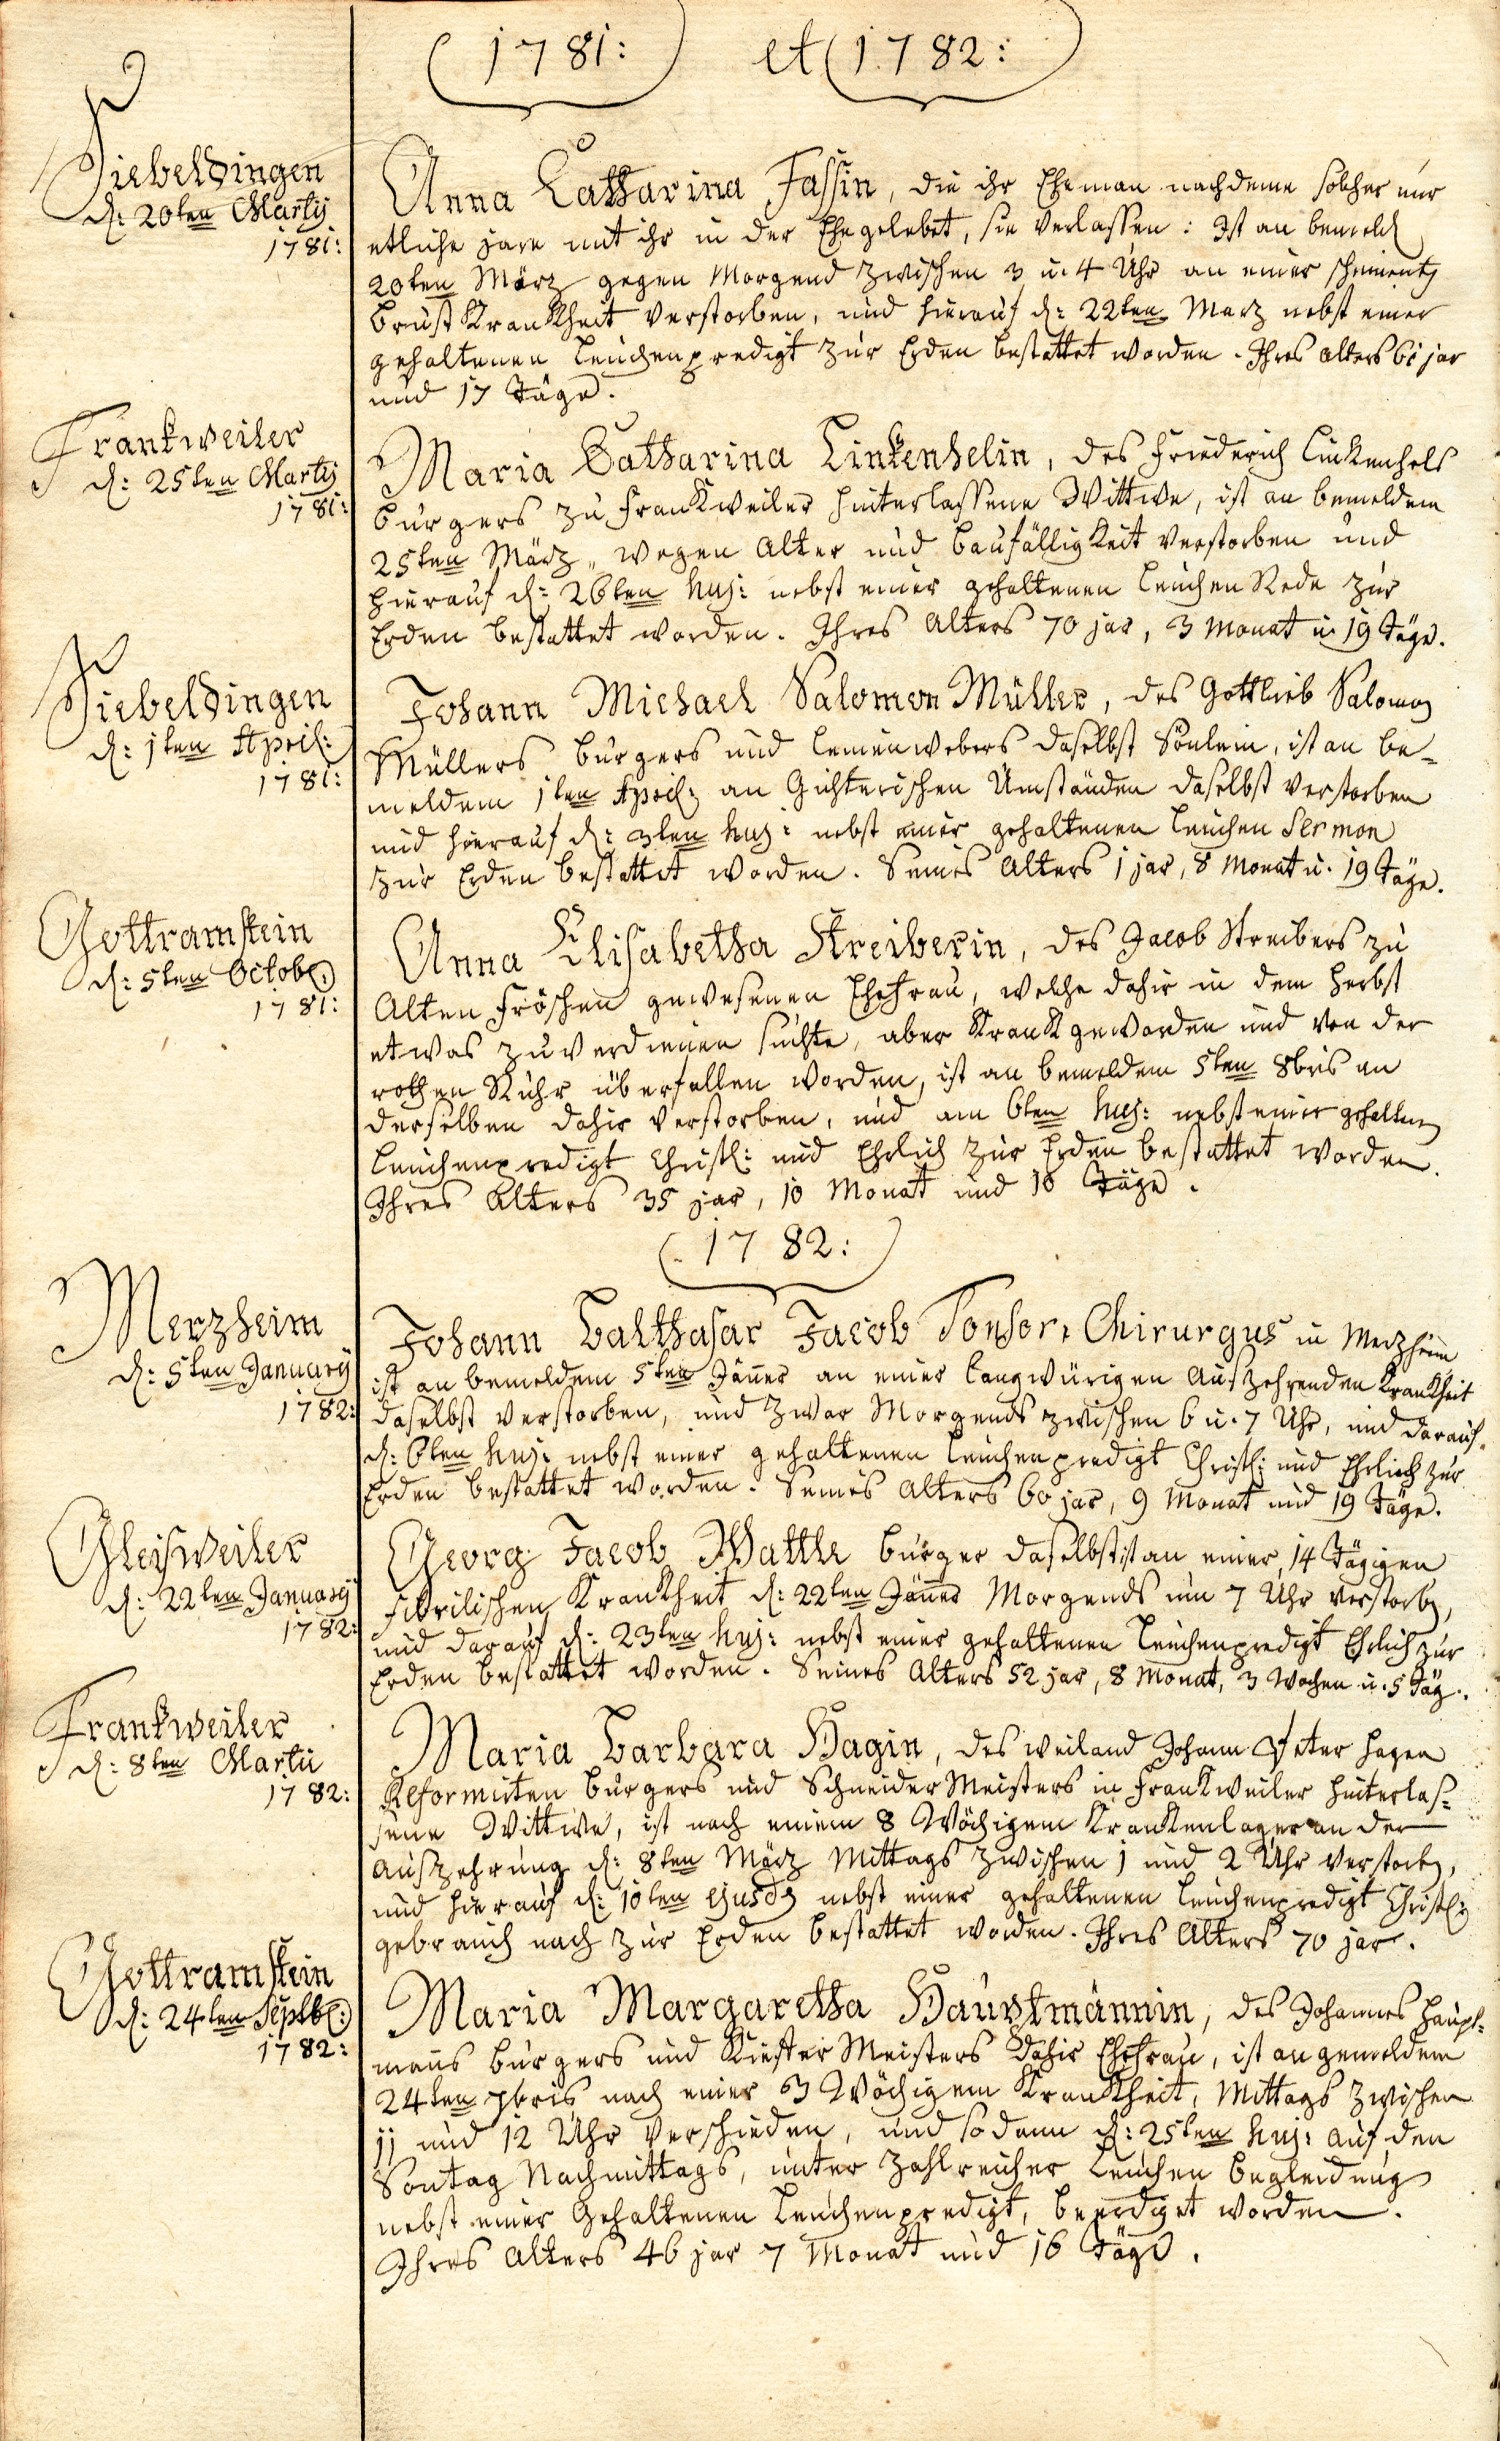 1781: et 1782:
Siebeldingen
d: 20ten Martÿ
1781:
Anna Catharina Fassin, die ihr Eheman nachdeme solcher nur
etliche jare mit ihr in der Ehe gelebet, sie verlassen: Ist an bemeld
20ten März gegen Morgend zwischen 3 u. 4 Uhr an einer
Brust Krankheit verstorben, und hierauf d: 22ten Marz nebst einer
gehaltenen Leichenpredigt zur Erden bestattet worden. Ihres alters 61 jar
und 17 Täge.
Frankweiler
d: 25ten Martÿ
1781:
Maria Catharina Linkenhelin, des Friederich Linkenhels
burgers zu Frankweiler hinterlassene Wittwe, ist an bemeldem
25ten März, wegen Alter und baufälligkeit verstorben und
hierauf d: 26ten huj: nebst einer gehaltenen Leichen Rede zur
Erden bestattet worden. Ihres Alters 70 jar, 3 Monat u. 19 Täge.
Siebeldingen
d: 1ten April:
1781:
Johann Michael Salomon Müller, des Gottlieb Salomon
Müllers burgers und Leinenwebers daselbst Sönlein, ist an be-
meldem 1ten April: an Gichterischen Umständen daselbst verstorben
und hierauf d: 3ten huj: nebst einer gehaltenen Leichen Sermon
zur Erden bestattet worden. Seines Alters 1 jar, 8 Monat u. 19 Täge.
Gottramstein
d: 5ten Octob:
1781:
Anna Elisabetha Streiberin, des Jacob Streibers zu
Alten Fröschen gewesenen Ehefrau, welche dahir in dem Herbst
etwas zu verdienen suchte, aber Krank geworden und von der
rothen Ruhr überfallen worden, ist an bemeldem 5ten 8bris an
derselben dahir verstorben, und am 6ten huj: nebst einer gehaltenen
Leichenpredigt Christl: und Ehrlich zur Erden bestattet worden.
Ihres Alters 35 jar, 10 Monat und 10 Täge.
1782:
Merzheim
d: 5ten Januarÿ
1782:
Johann Balthasar Jacob Tonsor, Chirurgus in Merzheim
ist an bemeldem 5ten Jäner an einer langwürigen auszehrenden Krankheit
daselbst verstorben, und zwar Morgends zwischen 6 u. 7 Uhr, und darauf
d: 6ten huj: nebst einer gehaltenen Leichenpredigt Christl: und Ehrlich zur
Erden bestattet worden. Seines Alters 60 jar, 9 Monat und 19 Täge.
Gleisweiler
d: 22ten Januarÿ
1782:
Georg Jacob Wattle burger daselbst ist an einer 14 Tägigen
Febrilischen Krankheit d: 22ten Jäner Morgends um 7 Uhr verstorben,
und darauf d: 23ten huj: nebst einer gehaltenen Leichenpredigt Ehrlich zur
Erden bestattet worden. Seines Alters 52 jar, 8 Monat, 3 Wochen u. 5 Täg.
Frankweiler
d: 8ten Martii
1782:
Maria Barbara Hagin, des weiland Johann Peter Hagen
Reformirten burgers und Schneider Meisters in Frankweiler hinterlas-
sene Wittwe, ist nach einem 8 Wöchigem Krankenlager an der
auszehrung d: 8ten März Mittags zwischen 1 und 2 Uhr verstorben,
und hierauf d: 10ten ejusd nebst einer gehaltenen Leichenpredigt Christl:
gebrauch nach zur Erden bestattet worden. Ihres Alters 70 jar.
Gottramstein
d: 24ten Septb:
1782:
Maria Margaretha Hauptmännin, des Johannes Haupt-
manns burgers und Kiefer Meisters dahir Ehefrau, ist an gemeldem
24ten 7bris nach einer 3 Wöchigem Krankheit, Mittags zwischen
11 und 12 Uhr verschieden, und sodann d: 25ten huj: auf den
Sontag Nachmittags, unter zahlreicher Leichen begleidung
nebst einer Gehaltenen Leichenpredigt, beerdiget worden.
Ihres Alters 46 jar 7 Monat und 16 Täge.